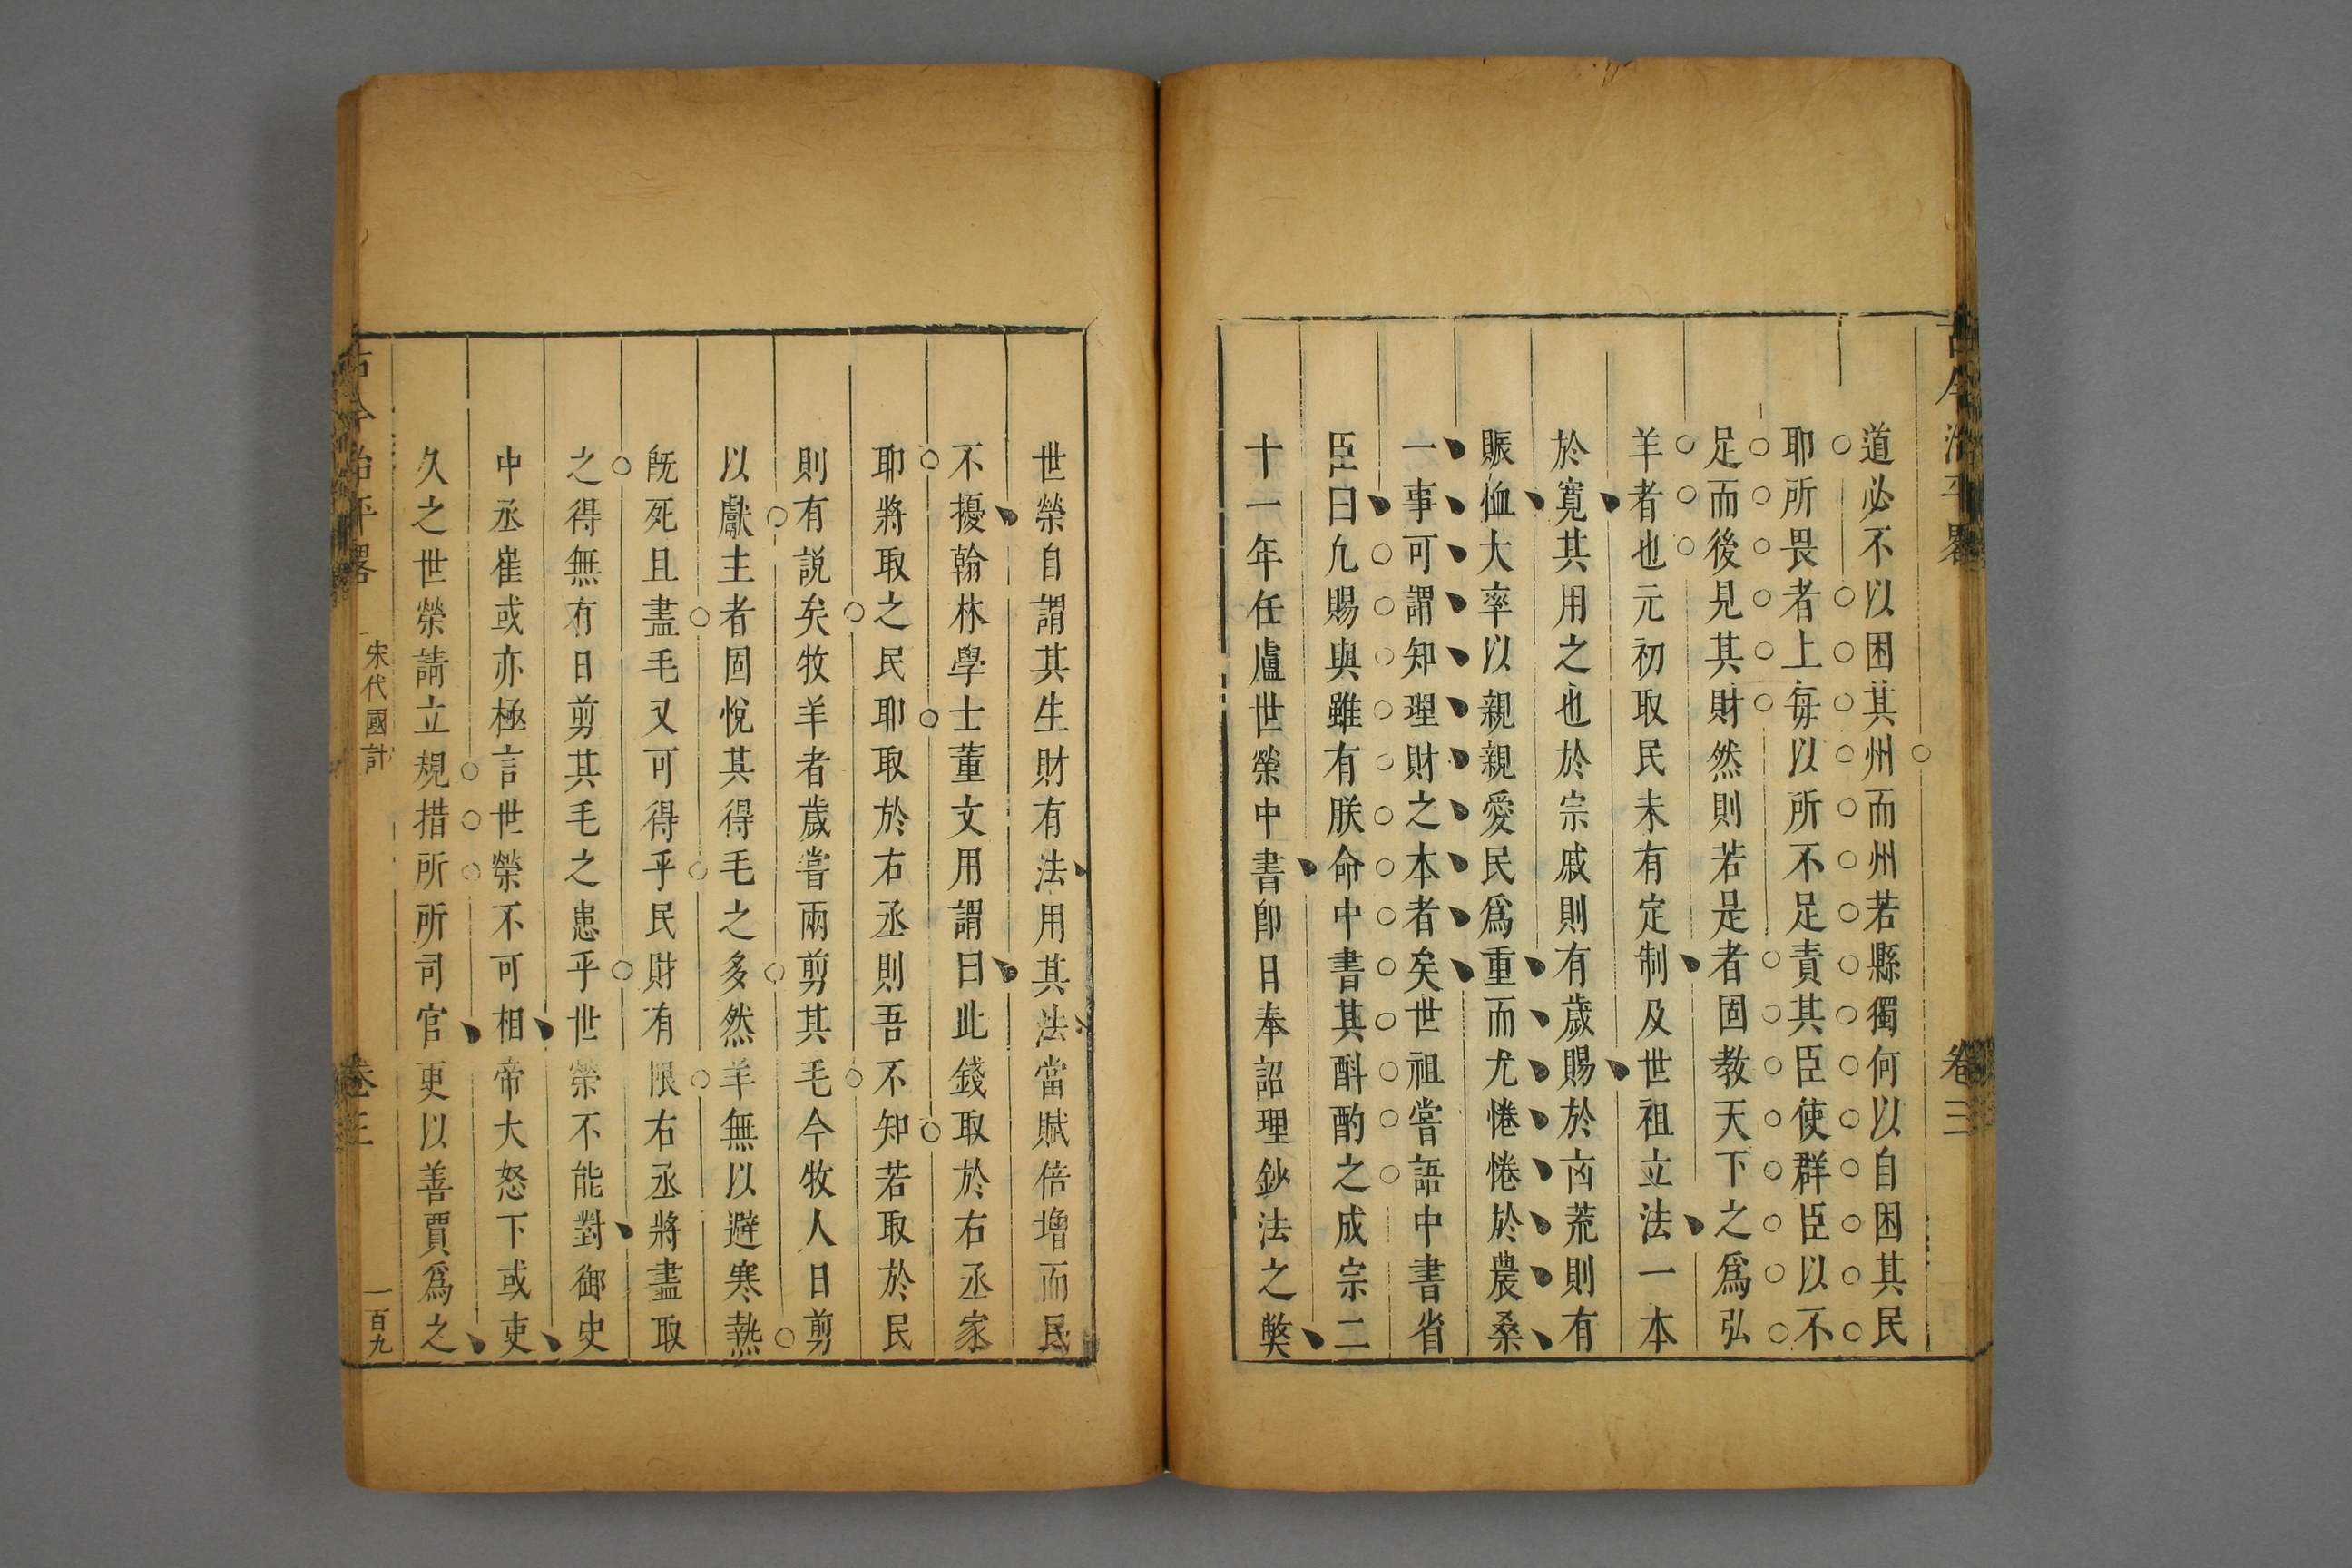 道必不以困其州而州若縣獨何以自困其民
耶所畏者上每以所不足責其臣使群臣以不
足而後見其財然則若是者固教天下之爲弘
羊者也元初取民未有定制及世祖立法一本
於寬其用之也於宗戚則有歲賜於㐫荒則有
賑恤大率以親親愛民爲重而尤惓惓於農桑
一事可謂知理財之本者矣世祖嘗語中書省
臣曰凢賜與雖有朕命中書其斟酌之成宗二
十一年任盧世榮中書卽日奉詔理鈔法之獘
古今治平畧
卷三
世榮自謂其生財有法用其法當賦倍增而民
不擾翰林學士董文用謂曰此錢取於右丞家
耶將取之民耶取於右丞則吾不知若取於民
則有説矣牧羊者歲嘗兩剪其毛今牧人日剪
以獻主者固悅其得毛之多然羊無以避寒熱
旣死且盡毛又可得乎民財有限右丞將盡取
之得無有日剪其毛之患乎世榮不能對御史
中丞崔或亦極言世榮不可相帝大怒下或吏
久之世榮請立規措所所司官更以善賈爲之
古今治平畧
宋代國計
卷三
一百九